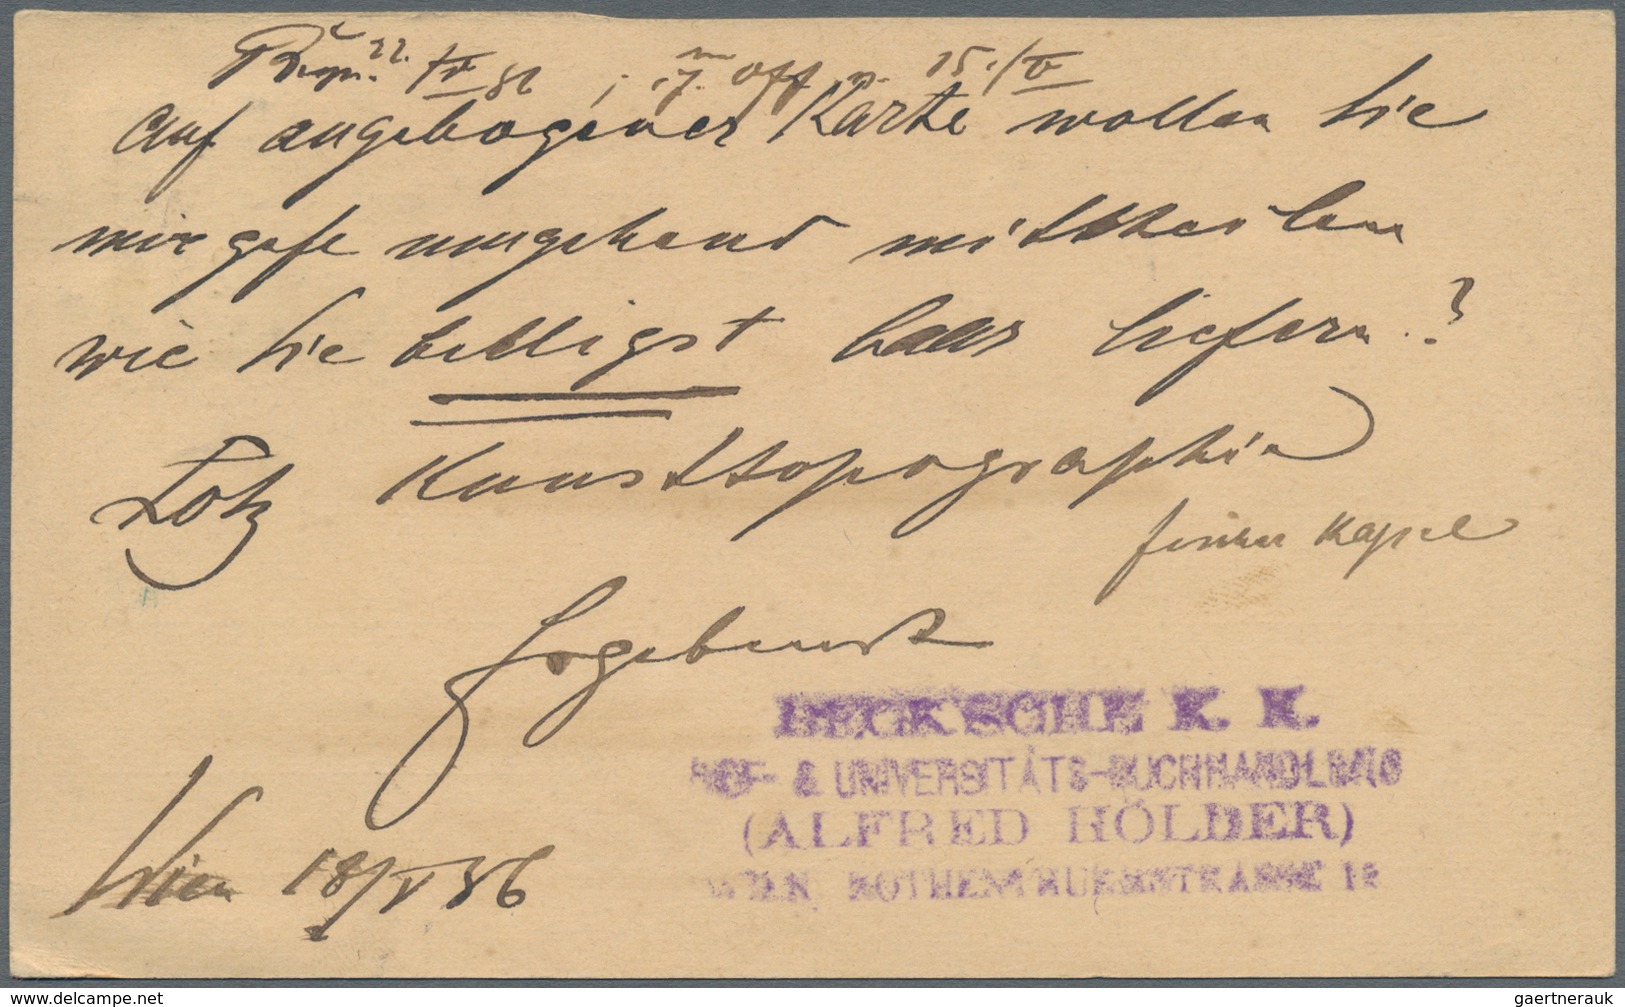 22./V 86 ; off v. 15./V
Auf angebogener Karte wollen Sie
mir gefl umgehend mittheilen
wie Sie billigst baar liefern?
Lotz Kunsttopographie
Kapsel
Ergebenst
BECK'SCHE K. K.
HOF- & UNIVERSITÄTS-BUCHHANDLUNG
(ALFRED HÖLDER)
WIEN, ROTHENTHURMSTRASSE 15
Wien 18/V 86
www.delcampe.net
gaertnerauk